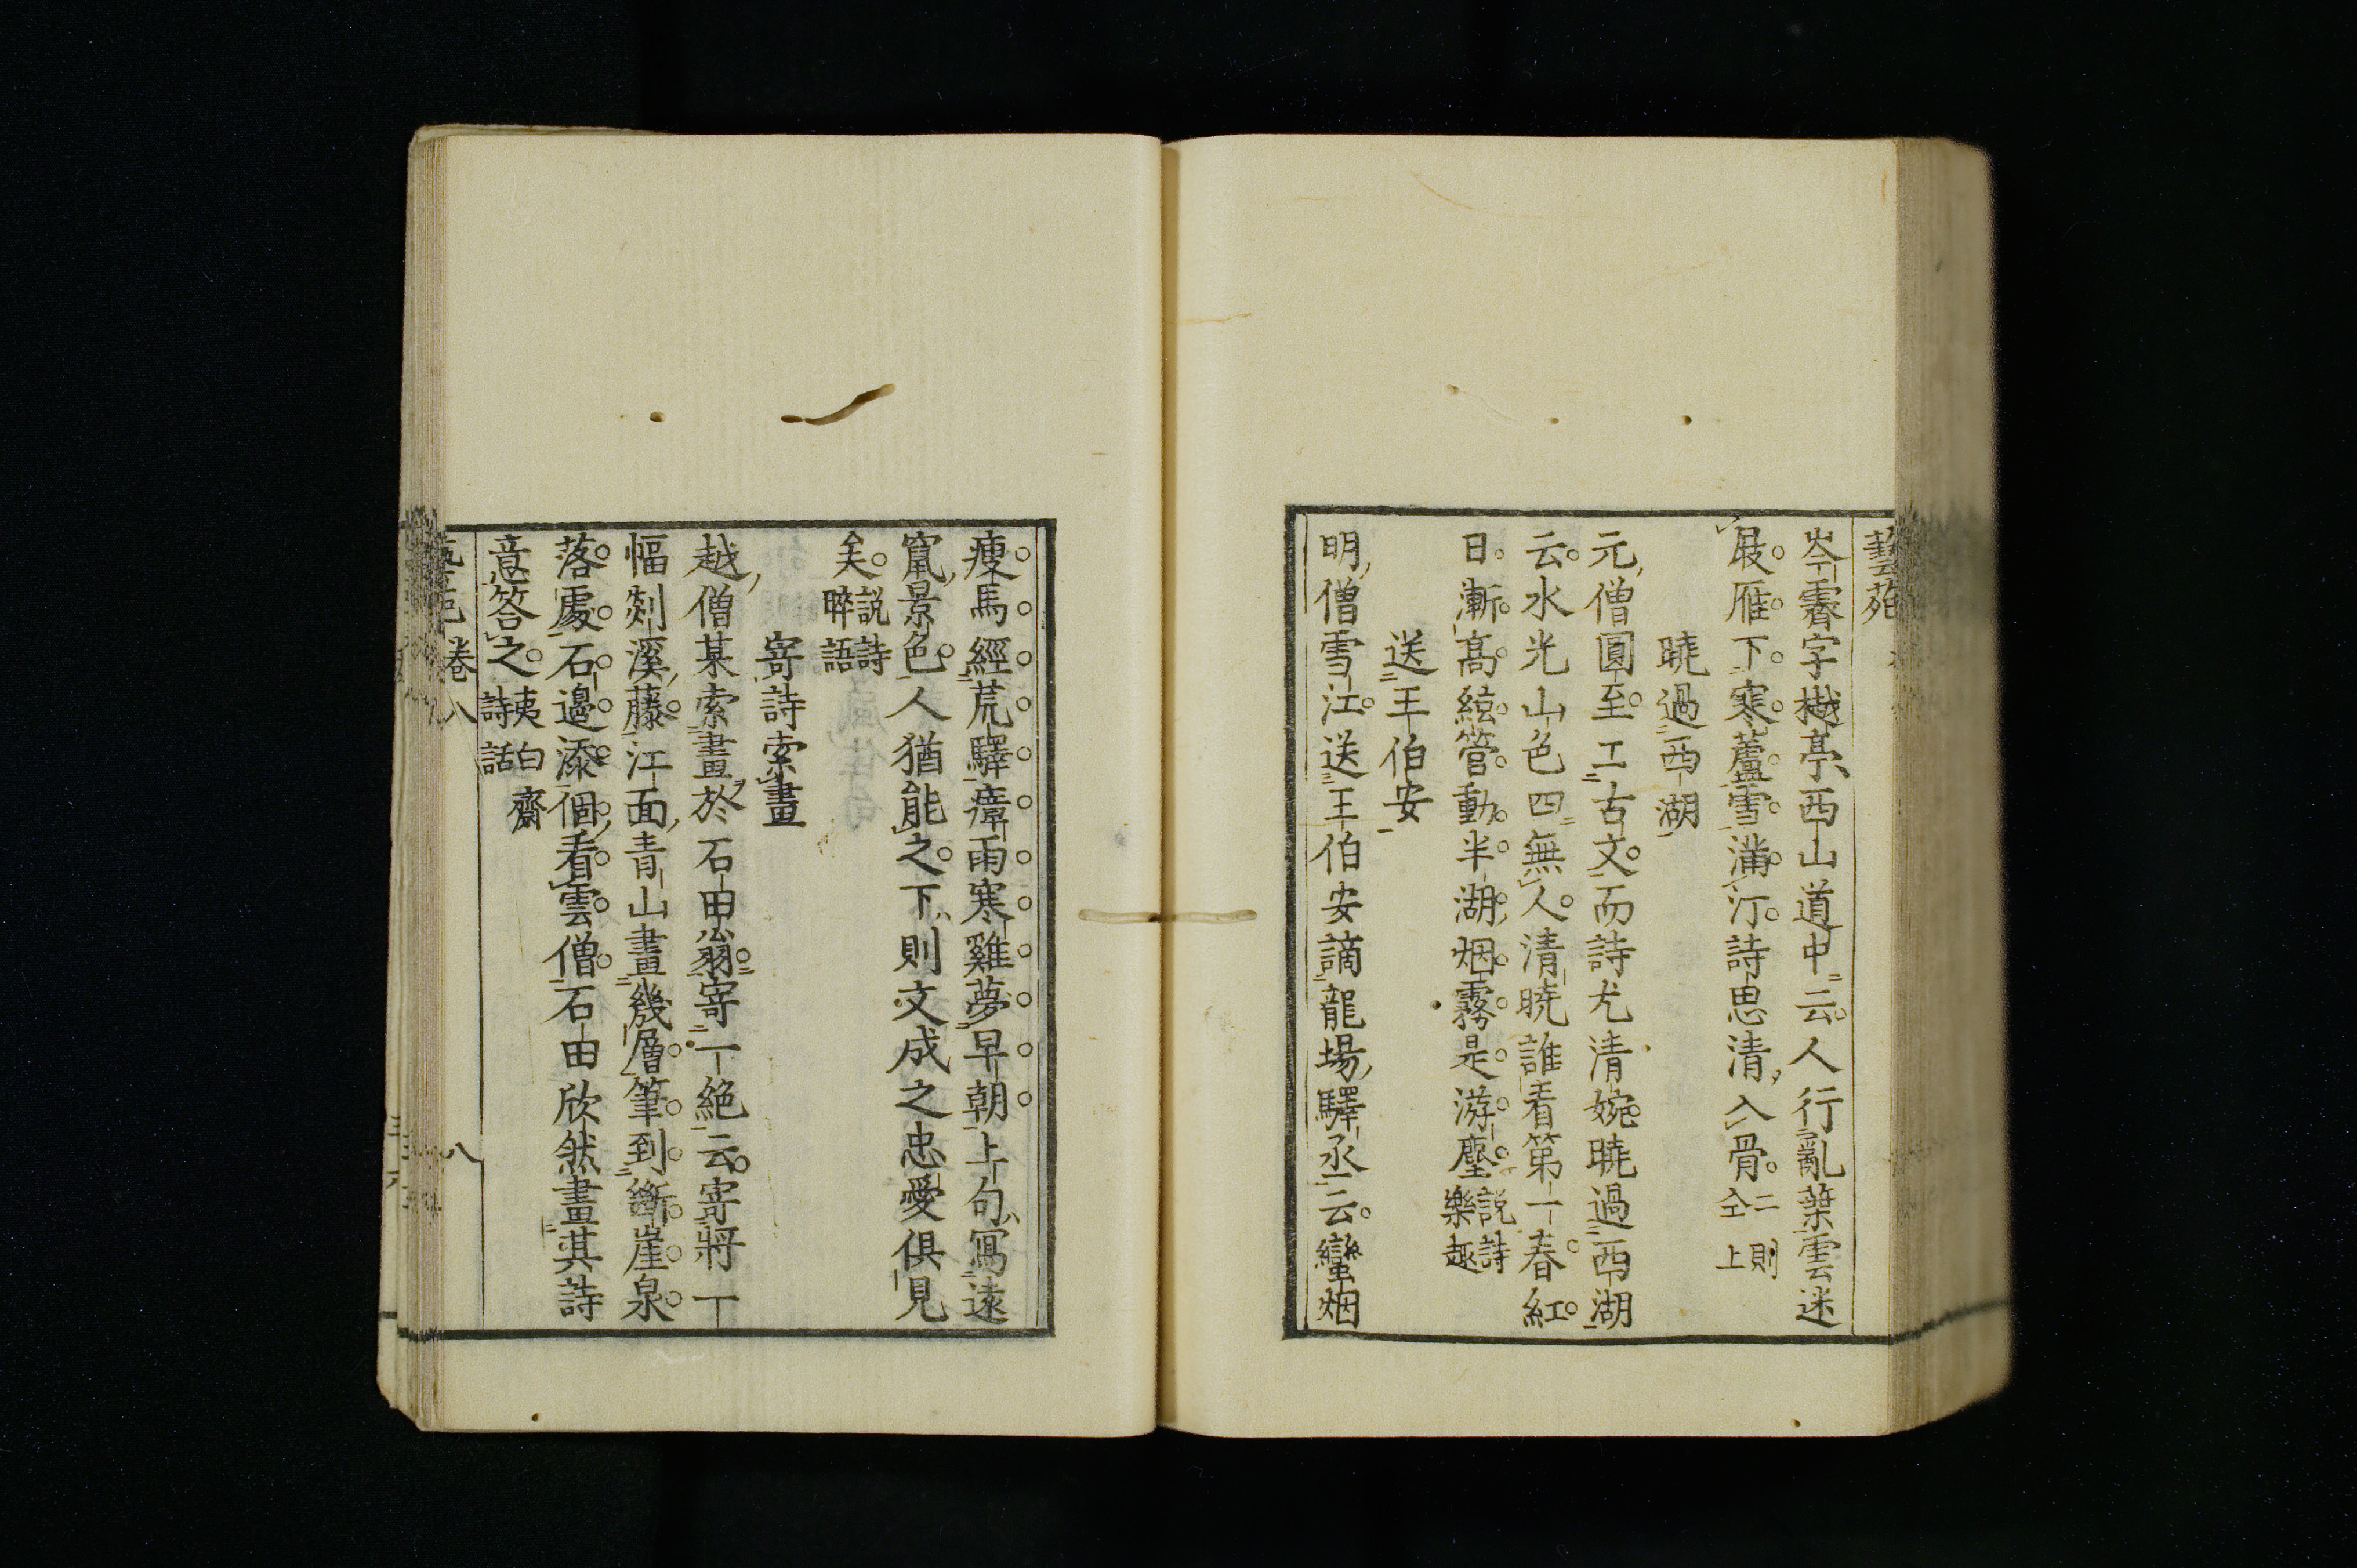 藝苑
岑霽字樾亭西山道中云人行亂葉雲迷
屐雁下寒蘆雪滿汀詩思清入骨二則仝上
曉過西湖
元僧圓至工古文而詩尤清婉曉過西湖
云水光山色四無人清曉誰看第一春紅
日漸高絃管動半湖烟霧是游塵説詩樂趣
送王伯安
明僧雪江送王伯安謫龍塲驛丞云蠻烟
瘦馬經荒驛瘴雨寒雞夢早朝上句寫遠
竄景色人猶能之下則文成之忠愛俱見
矣説詩晬語
寄詩索畫
越僧某索畫於石田翁寄一絶云寄將一
幅剡溪藤江面青山畫幾層筆到斷崖泉
落處石邊添個看雲僧石田欣然畫其詩
意答之夷白齋詩話
卷八
八